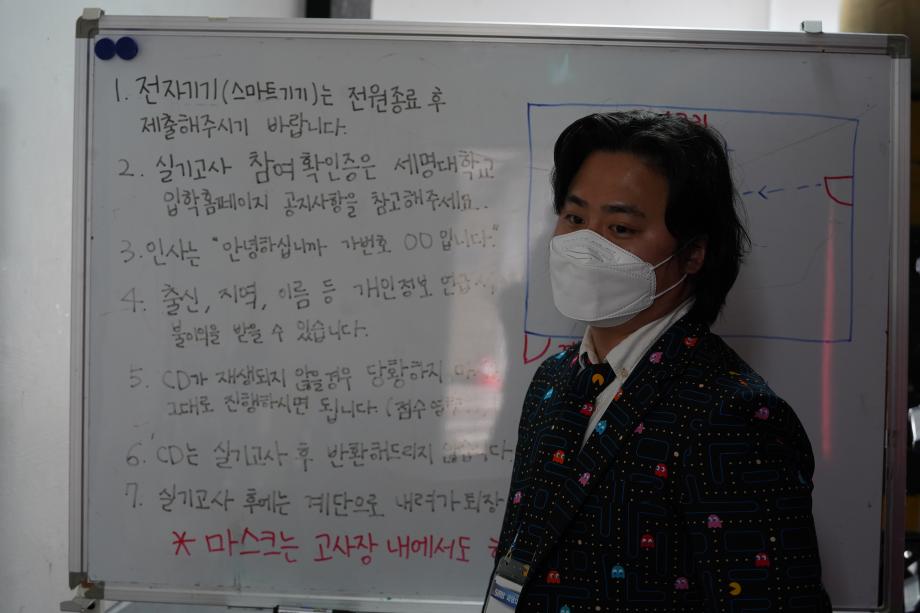 1. 전자기기(스마트기기)는 전원종료 후
제출해주시기 바랍니다.
2. 실기고사 참여확인증은 세명대학교
입학홈페이지 공지사항을 참고해주세요..
3. 인사는 "안녕하십니까 가번호 OO입니다."
4. 출신, 지역, 이름 등 개인정보 언급시,
불이익을 받을 수 있습니다.
5. CD가 재생되지 않을경우 당황하지
그대로 진행하시면 됩니다. (점수
6. CD는 실기고사 후 반환해드리지 않습니다
7. 실기고사 후에는 계단으로 내려가 퇴장
* 마스크는 고사장 내에서도